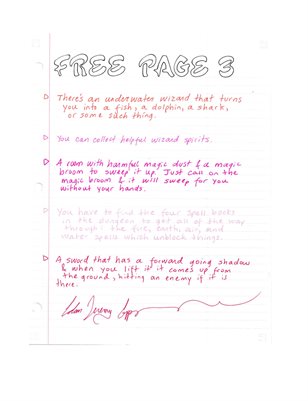 FREE PAGE 3
There's an underwater wizard that turns
you into a fish, a dolphin, a shark,
or some such thing.
You can collect helpful wizard spirits.
A room with harmful magic dust & a magic
broom to sweep it up. Just call on the
magic broom & it will sweep for you
without your hands.
You have to find the four spell books
in the dungeon to get all of the way
through - the fire, earth, air, and
water spells which unblock things.
A sword that has a forward going shadow
& when you lift it it comes up from
the ground, hitting an enemy if it is
there.
Jeremy